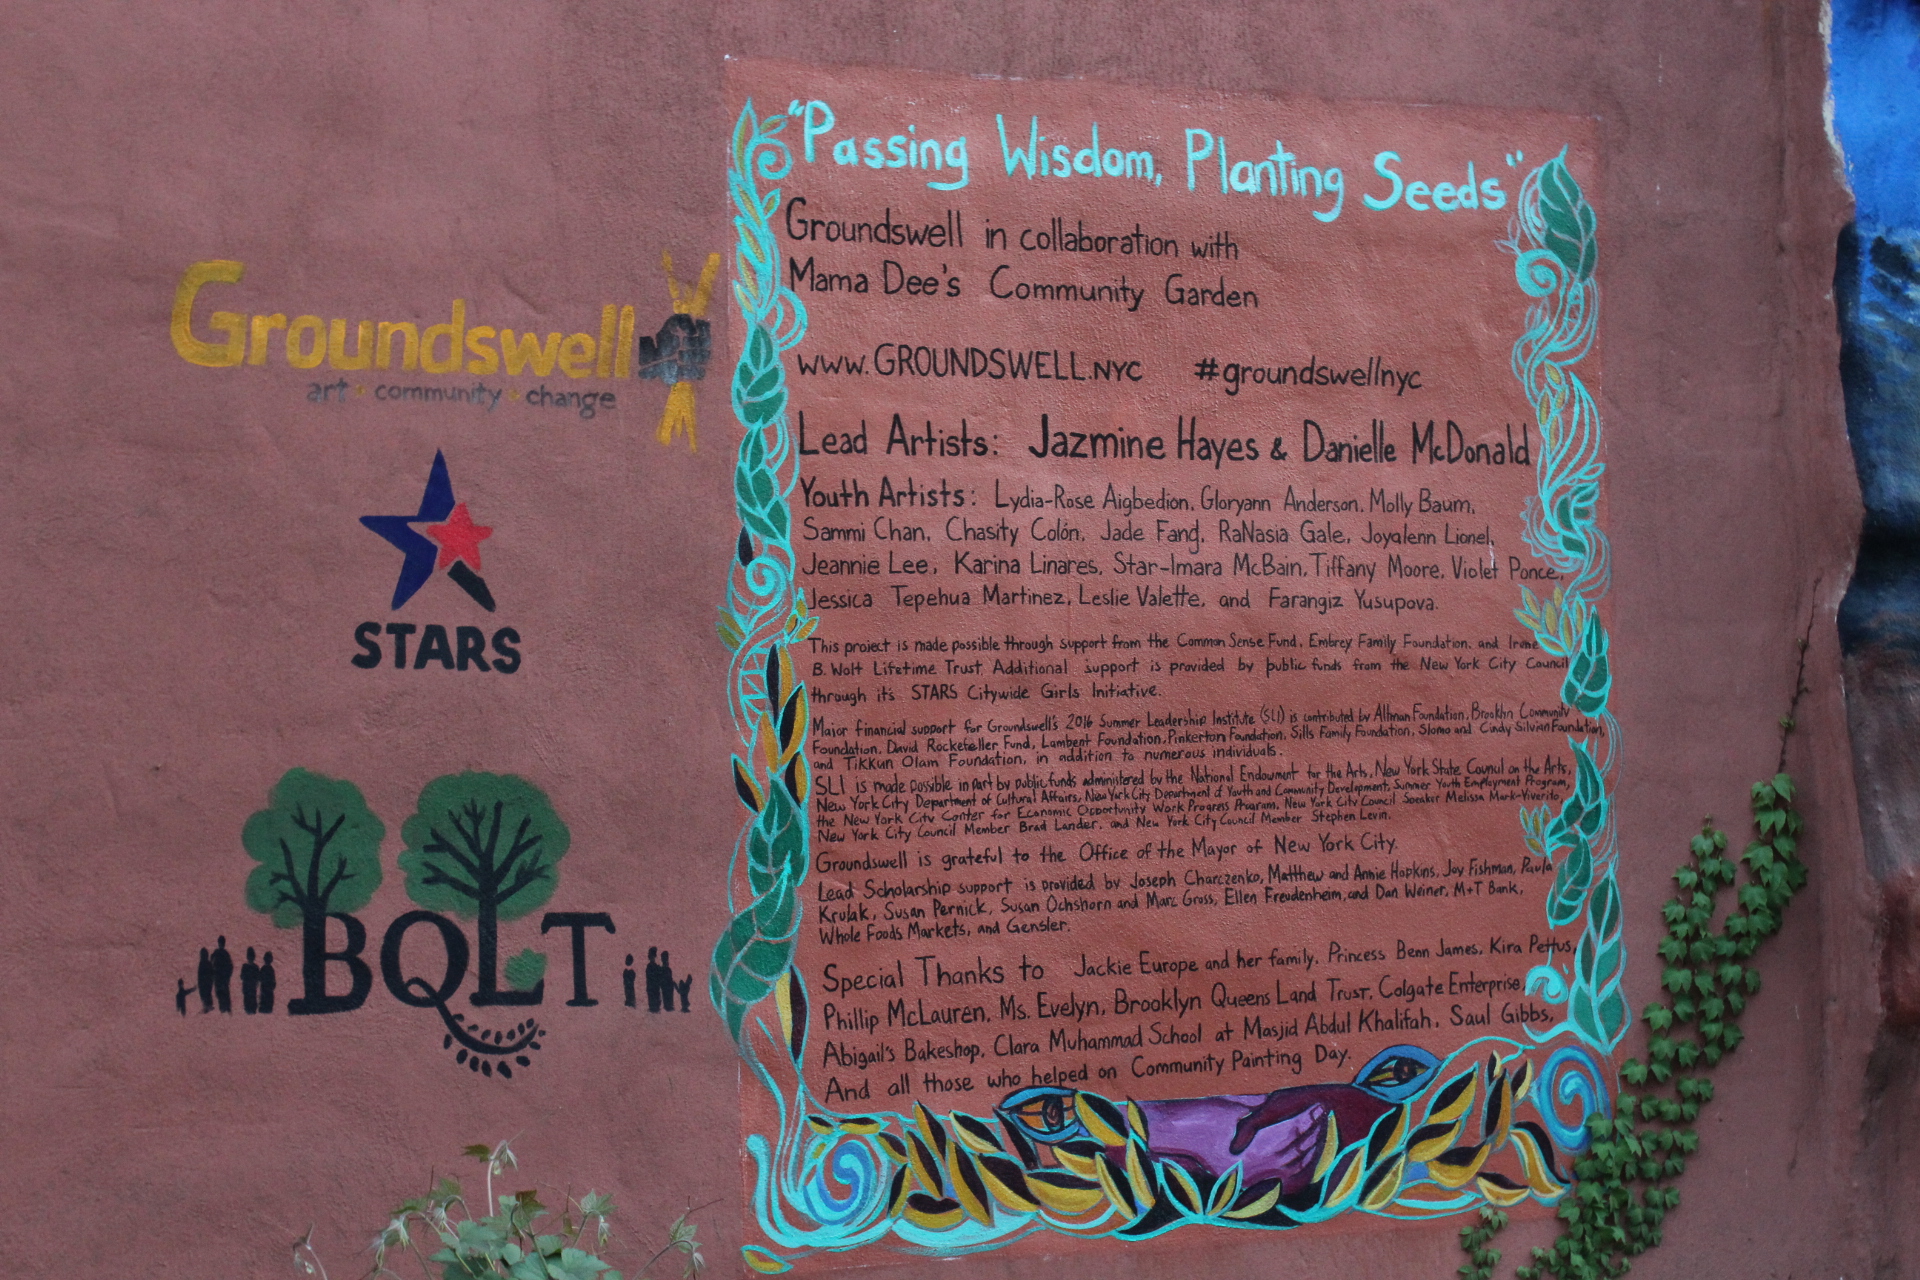 "Passing Wisdom, Planting Seeds"
Groundswell in collaboration with
Mama Dee's Community Garden
www.GROUNDSWELL.NYC #groundswellnyc
Lead Artists: Jazmine Hayes & Danielle McDonald
Youth Artists: Lydia-Rose Aigbedion, Gloryann Anderson, Molly Baum,
Sammi Chan, Chasity Colón, Jade Fang, RaNasia Gale, Joyalenn Lionel,
Jeannie Lee, Karina Linares, Star-Imara McBain, Tiffany Moore, Violet Ponce,
Jessica Tepehua Martinez, Leslie Valette, and Farangiz Yusupova.
This project is made possible through support from the Common Sense Fund, Embrey Family Foundation, and Irene
B. Wolt Lifetime Trust. Additional support is provided by public funds from the New York City Council
through it's STARS Citywide Girls Initiative.
Major financial support for Groundswell's 2016 Summer Leadership Institute (SLI) is contributed by Altman Foundation, Brooklyn Community
Foundation, David Rockefeller Fund, Lambent Foundation, Pinkerton Foundation, Sills Family Foundation, Slomo and Cindy Silvian Foundation,
and Tikkun Olam Foundation, in addition to numerous individuals.
SLI is made possible in part by public funds administered by the National Endowment for the Arts, New York State Council on the Arts,
New York City Department of Cultural Affairs, New York City Department of Youth and Community Development, Summer Youth Employment Program,
the New York City Center for Economic Opportunity Work Progress Program, New York City Council Speaker Melissa Mark-Viverito,
New York City Council Member Brad Lander, and New York City Council Member Stephen Levin.
Groundswell is grateful to the Office of the Mayor of New York City.
Lead Scholarship support is provided by Joseph Charczenko, Matthew and Annie Hopkins, Joy Fishman, Paula
Krulak, Susan Pernick, Susan Ochshorn and Marc Gross, Ellen Freudenheim, and Dan Weiner, M+T Bank,
Whole Foods Markets, and Gensler.
Special Thanks to Jackie Europe and her family, Princess Benn James, Kira Pettus,
Phillip McLauren, Ms. Evelyn, Brooklyn Queens Land Trust, Colgate Enterprise,
Abigail's Bakeshop, Clara Muhammad School at Masjid Abdul Khalifah, Saul Gibbs,
And all those who helped on Community Painting Day.
Groundswell
art · community · change
STARS
BQLT